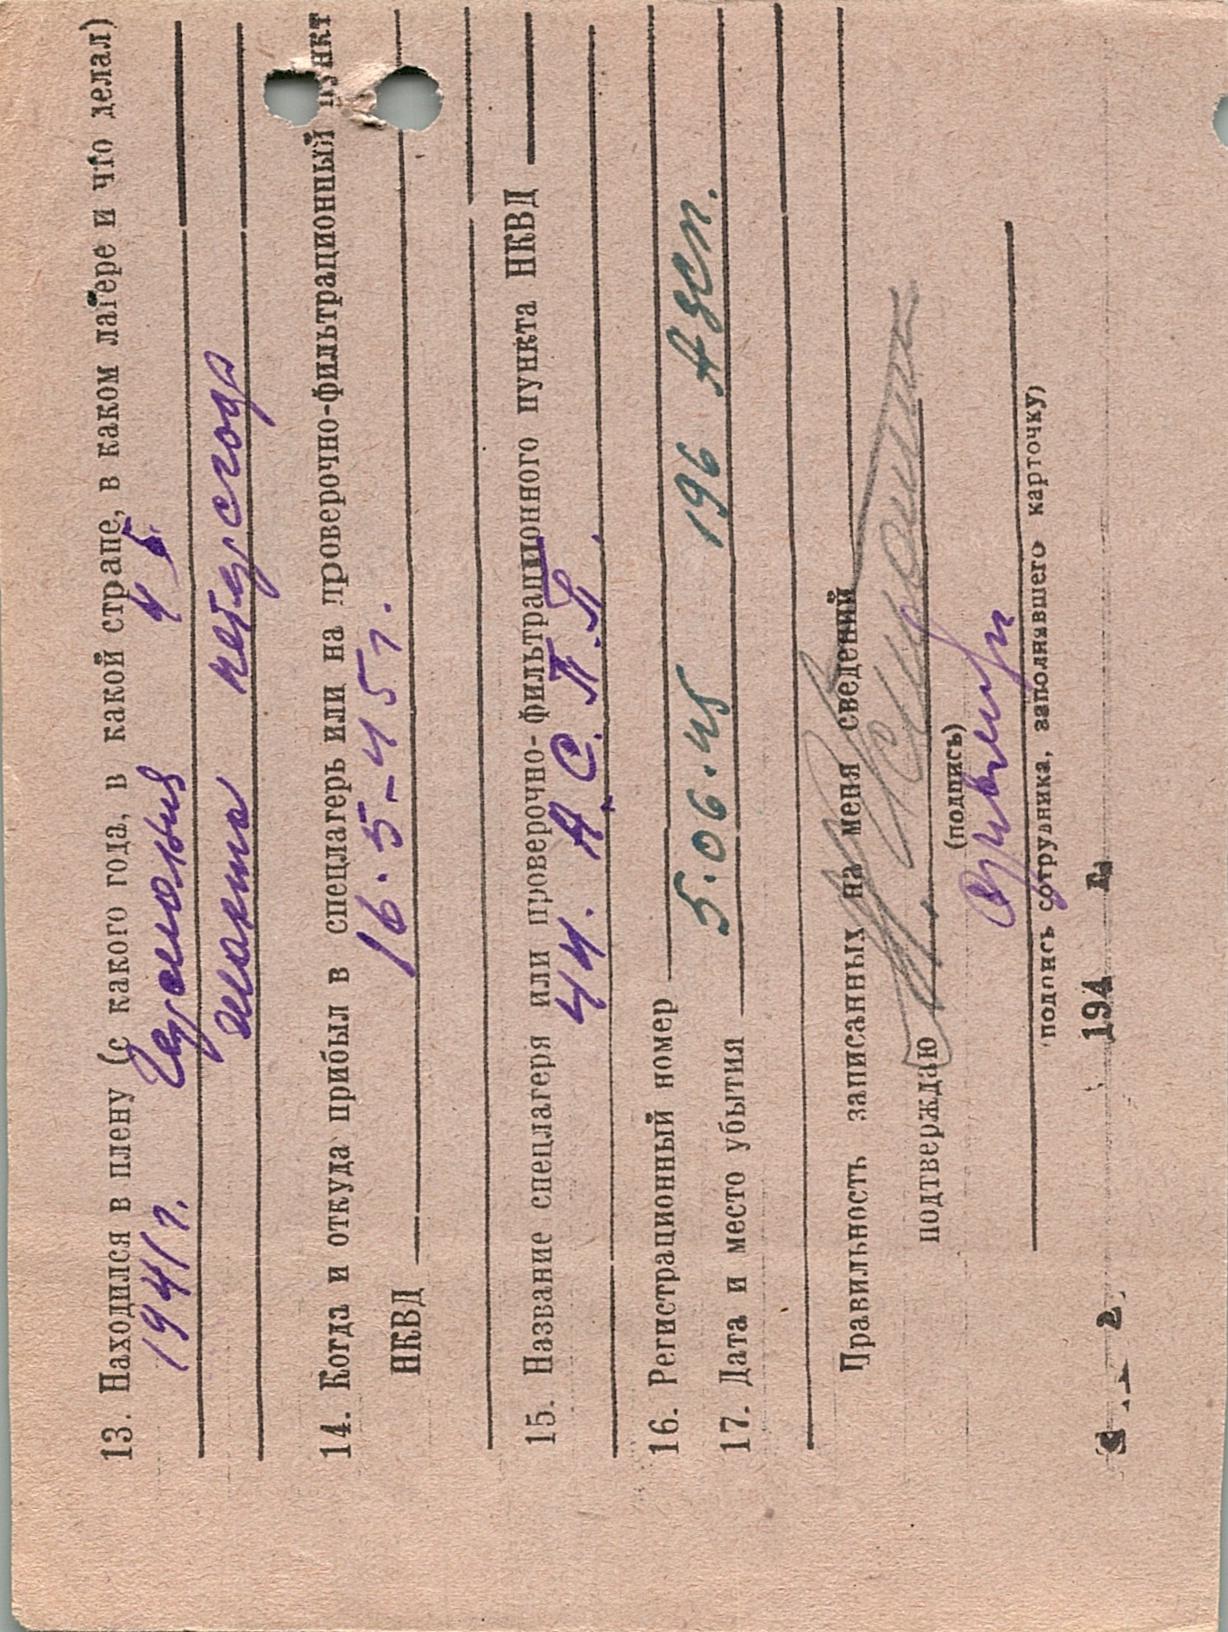 13. Находился в плену (с какого года, в какой стране, в каком лагере и что делал)
1941 г. Германия 4 Б
шахта
14. Когда и откуда прибыл в спецлагерь или на проверочно-фильтрационный пункт
НКВД 16.5-45 г.
15. Название спецлагеря или проверочно-фильтрационного пункта НКВД
44. А. С. П. П.
16. Регистрационный номер
17. Дата и место убытия 5.06.45 196 Азсп.
Правильность записанных на меня сведений
подтверждаю
(подпись)
(подпись сотрудника, заполнявшего карточку)
194 г.